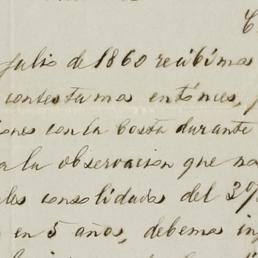 julio de 1860 recibimos
contestamos entónces,
iones con la Costa durante
a la observacion que no
les consolidada del 3%
en 5 años, debemos in